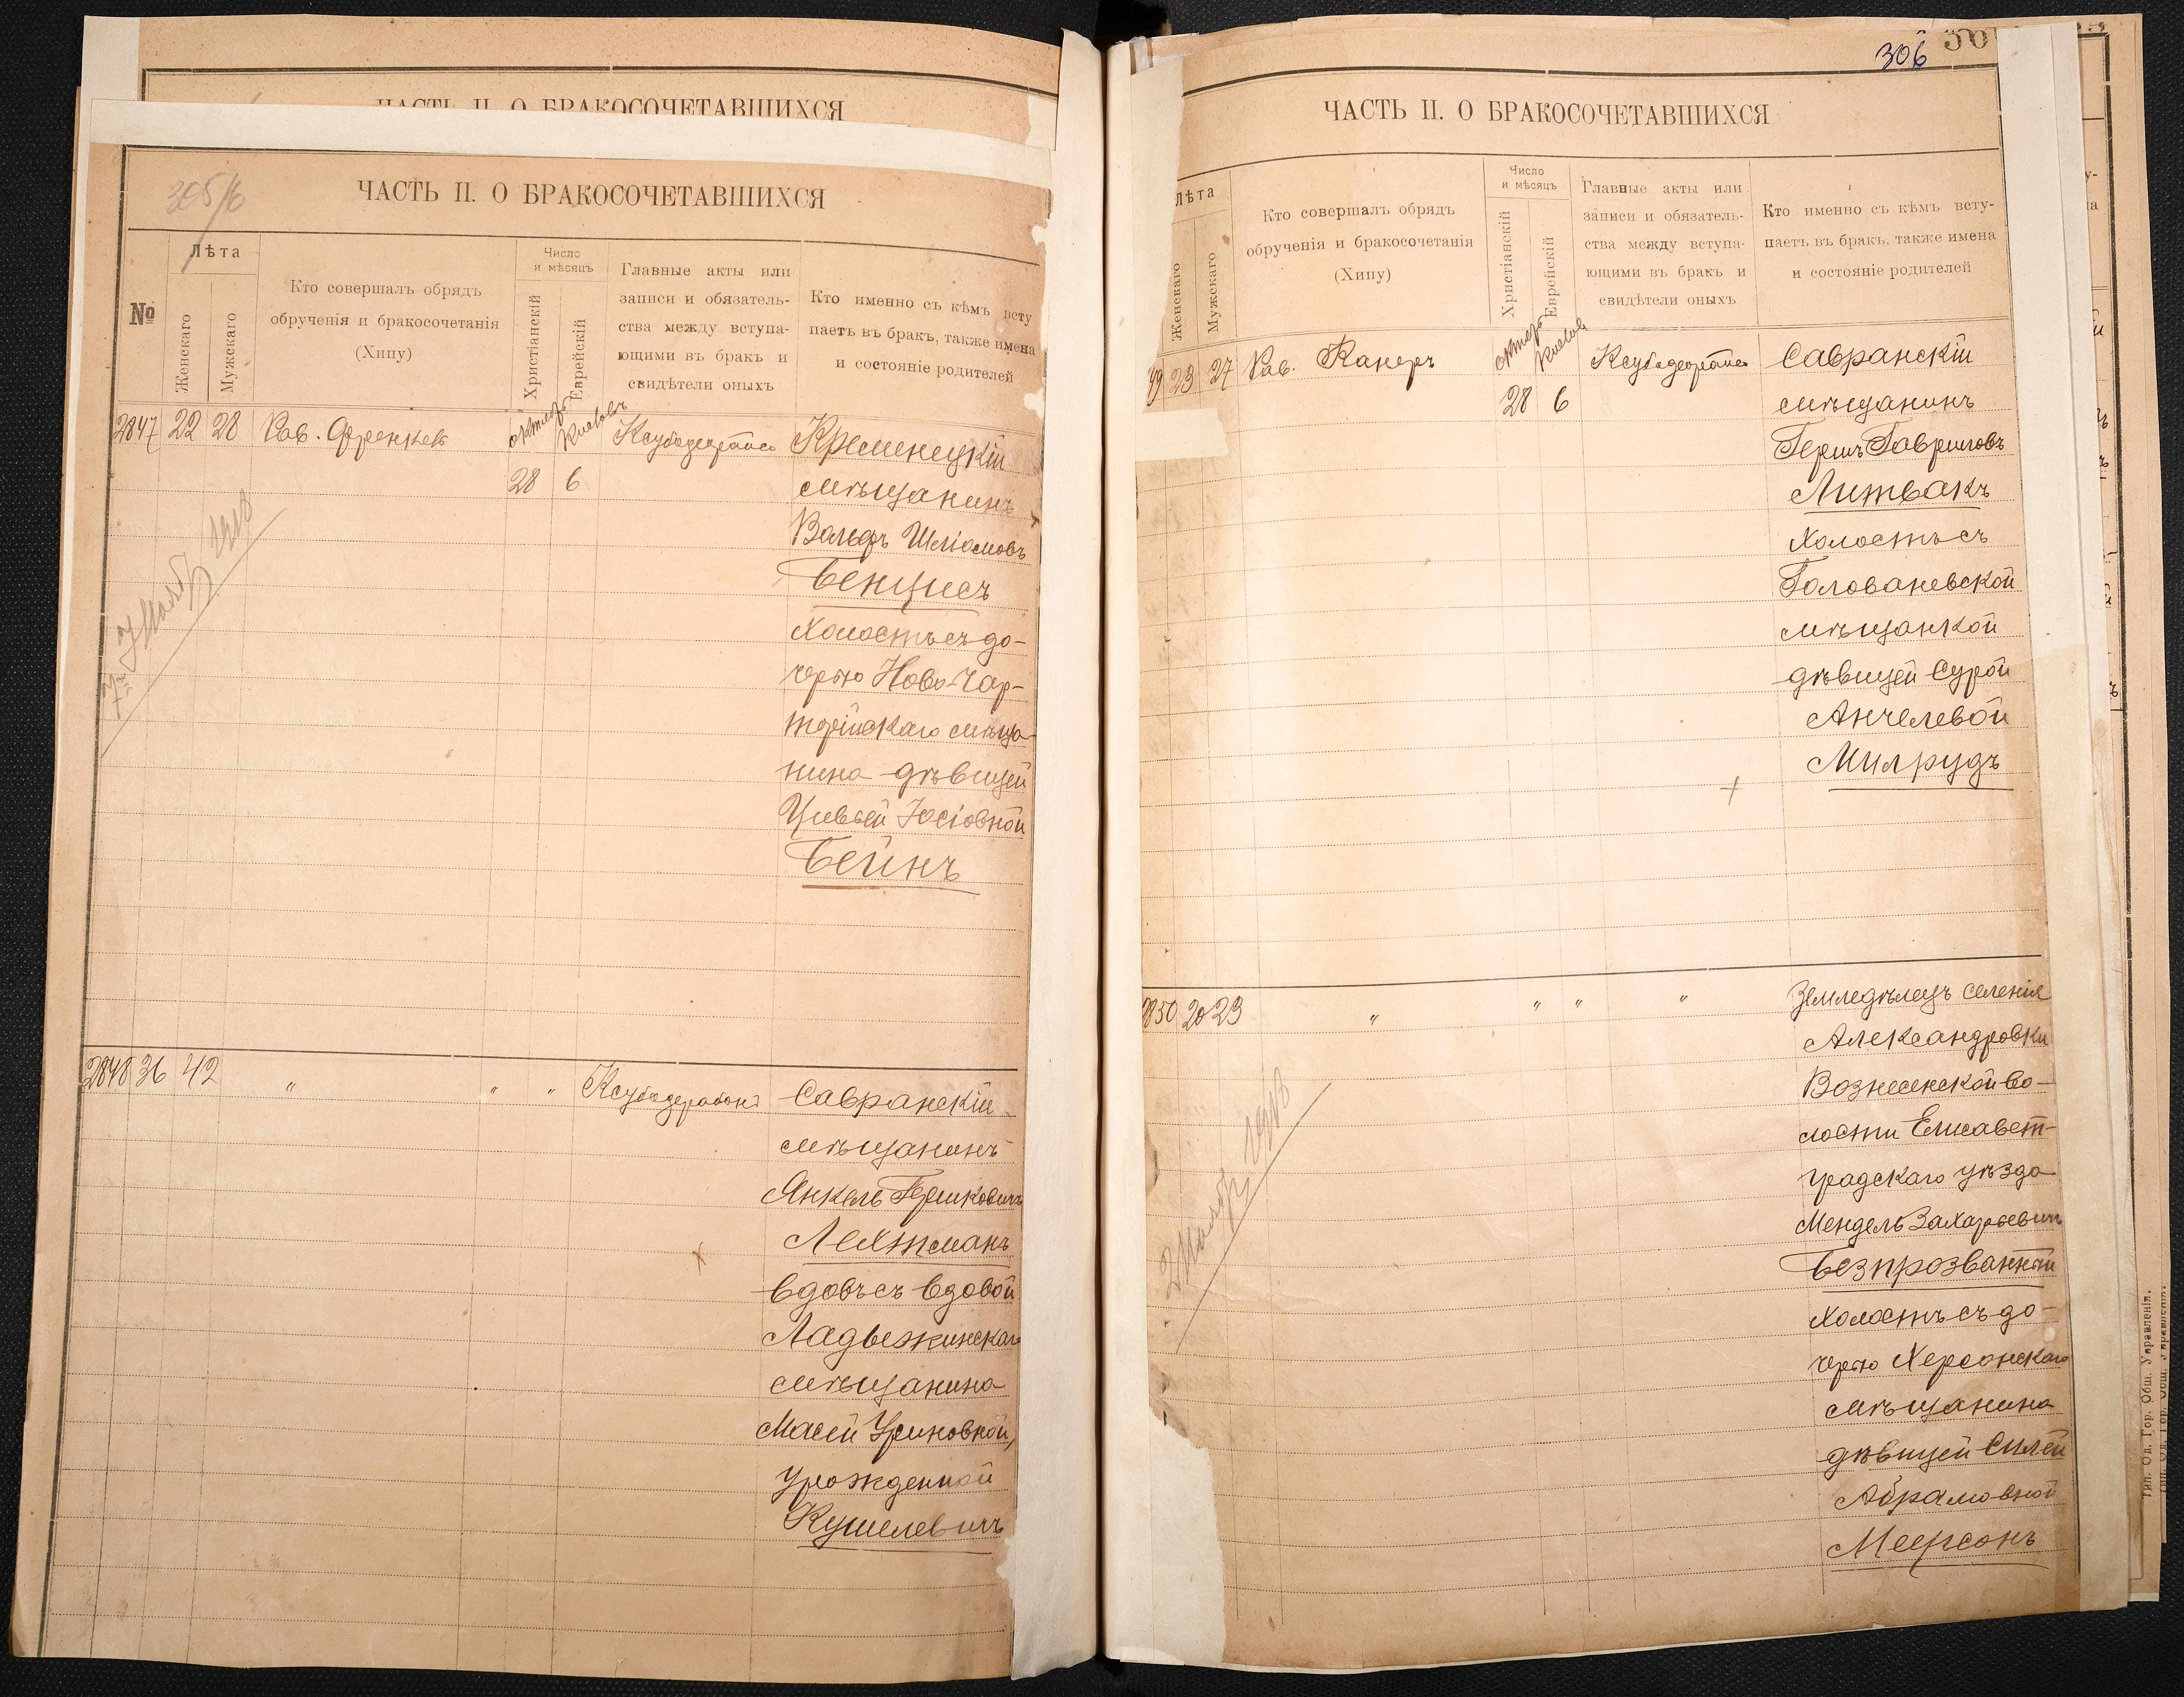 ЧАСТЬ II. О БРАКОСОЧЕТАВШИХСЯ
ЧАСТЬ II. О БРАКОСОЧЕТАВШИХСЯ
№
Лѣта
Женскаго
Мужскаго
Кто совершалъ обрядъ
обрученія и бракосочетанія
(Хипу)
Число
и мѣсяцъ
Христіанскій
Еврейскій
Главные акты или
записи и обязатель-
ства между вступа-
ющими въ бракъ и
свидѣтели оныхъ
Кто именно съ кѣмъ всту
паетъ въ бракъ, также имена
и состояніе родителей
2847 22 28 Рав. Френкель Кременецкій
28 6 мѣщанинъ
Вольфъ Шліомовъ
Бенцисъ
холостъ съ до-
черью Ново-Чар-
торійскаго мѣща-
нина дѣвицей
Цивьей Іосіовной
Бейнъ
2848 36 42 " " " Савранскій
мѣщанинъ
Янкель Гершковичъ
Лехтманъ
вдовъ съ вдовой
Ладыжинскаго
мѣщанина
Масей Усиновной,
урожденной
Кушелевичъ
306
ЧАСТЬ II. О БРАКОСОЧЕТАВШИХСЯ
Лѣта
Женскаго
Мужскаго
Кто совершалъ обрядъ
обрученія и бракосочетанія
(Хипу)
Число
и мѣсяцъ
Христіанскій
Еврейскій
Главные акты или
записи и обязатель-
ства между вступа-
ющими въ бракъ и
свидѣтели оныхъ
Кто именно съ кѣмъ всту-
паетъ въ бракъ, также имена
и состояніе родителей
49 23 27 Рав. Канеръ Савранскій
28 6 мѣщанинъ
Гершъ Гавриловъ
Литвакъ
холостъ съ
Голованевской
мѣщанкой
дѣвицей Сурой
Анчелевой
Милрудъ
2850 20 23 " " " " Земледѣлецъ селенія
Александровки
Вознесенской во-
лости Елисавет-
градскаго уѣзда
Мендель Захарьевичъ
Безпрозванный
холостъ съ до-
черью Херсонскаго
мѣщанина
дѣвицей Силей
Абрамовной
Меерсонъ
Тип. Од. Гор. Общ. Управленія.